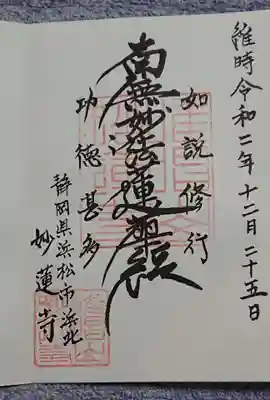 維時令和二年十二月二十五日
如説修行
南無妙法蓮華経
功徳甚多
静岡県浜松市浜北
妙蓮寺